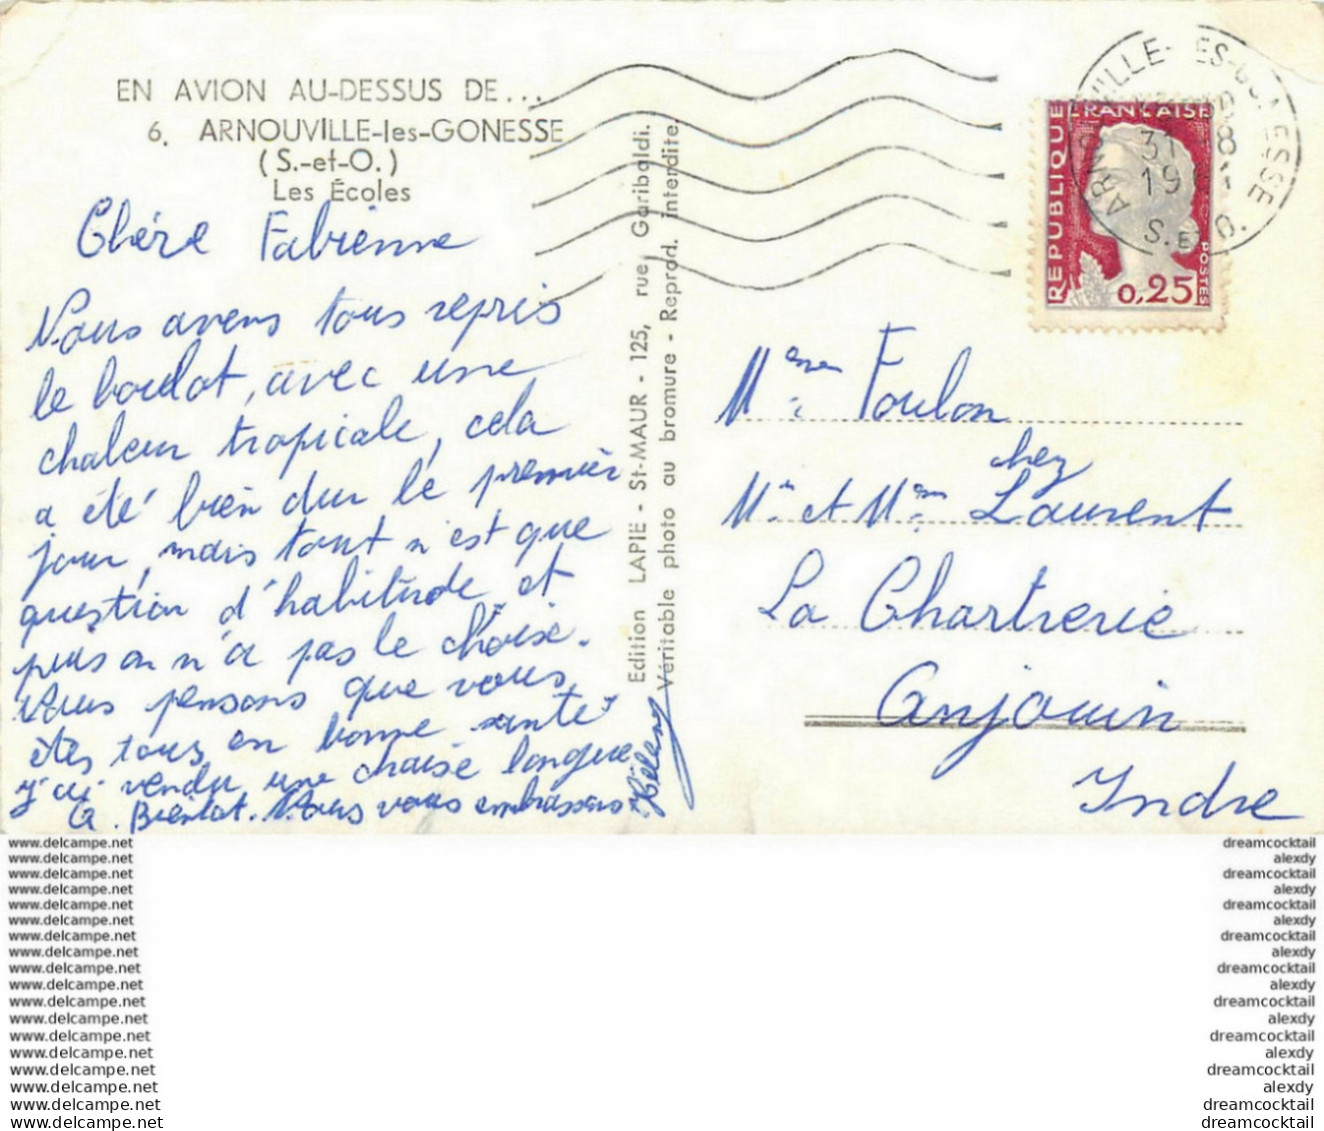 EN AVION AU-DESSUS DE...
6. ARNOUVILLE-les-GONESSE
(S.-et-O.)
Les Écoles
Chère Fabienne
Nous avons tous repris
le boulot, avec une
chaleur tropicale, cela
a été bien dur le premier
jour, mais tout n'est que
question d'habitude et
puis on n'a pas le choise.
Nous pensons que vous
êtes tous en bonne santé
j'ai vendu une chaise longue
A. Bientot. Nous vous embrassons
Edition LAPIE - St-MAUR - 125, rue Garibaldi.
Véritable photo au bromure - Reprod. interdite.
REPUBLIQUE FRANÇAISE
0,25
POSTES
31 8
19
S. ET O.
Mme Foulon
chez
Mr et Mme Laurent
La Chartrerie
Anjouin
Indre
www.delcampe.net
www.delcampe.net
www.delcampe.net
www.delcampe.net
www.delcampe.net
www.delcampe.net
www.delcampe.net
www.delcampe.net
www.delcampe.net
www.delcampe.net
www.delcampe.net
www.delcampe.net
www.delcampe.net
www.delcampe.net
www.delcampe.net
www.delcampe.net
www.delcampe.net
www.delcampe.net
dreamcocktail
alexdy
dreamcocktail
alexdy
dreamcocktail
alexdy
dreamcocktail
alexdy
dreamcocktail
alexdy
dreamcocktail
alexdy
dreamcocktail
alexdy
dreamcocktail
alexdy
dreamcocktail
dreamcocktail